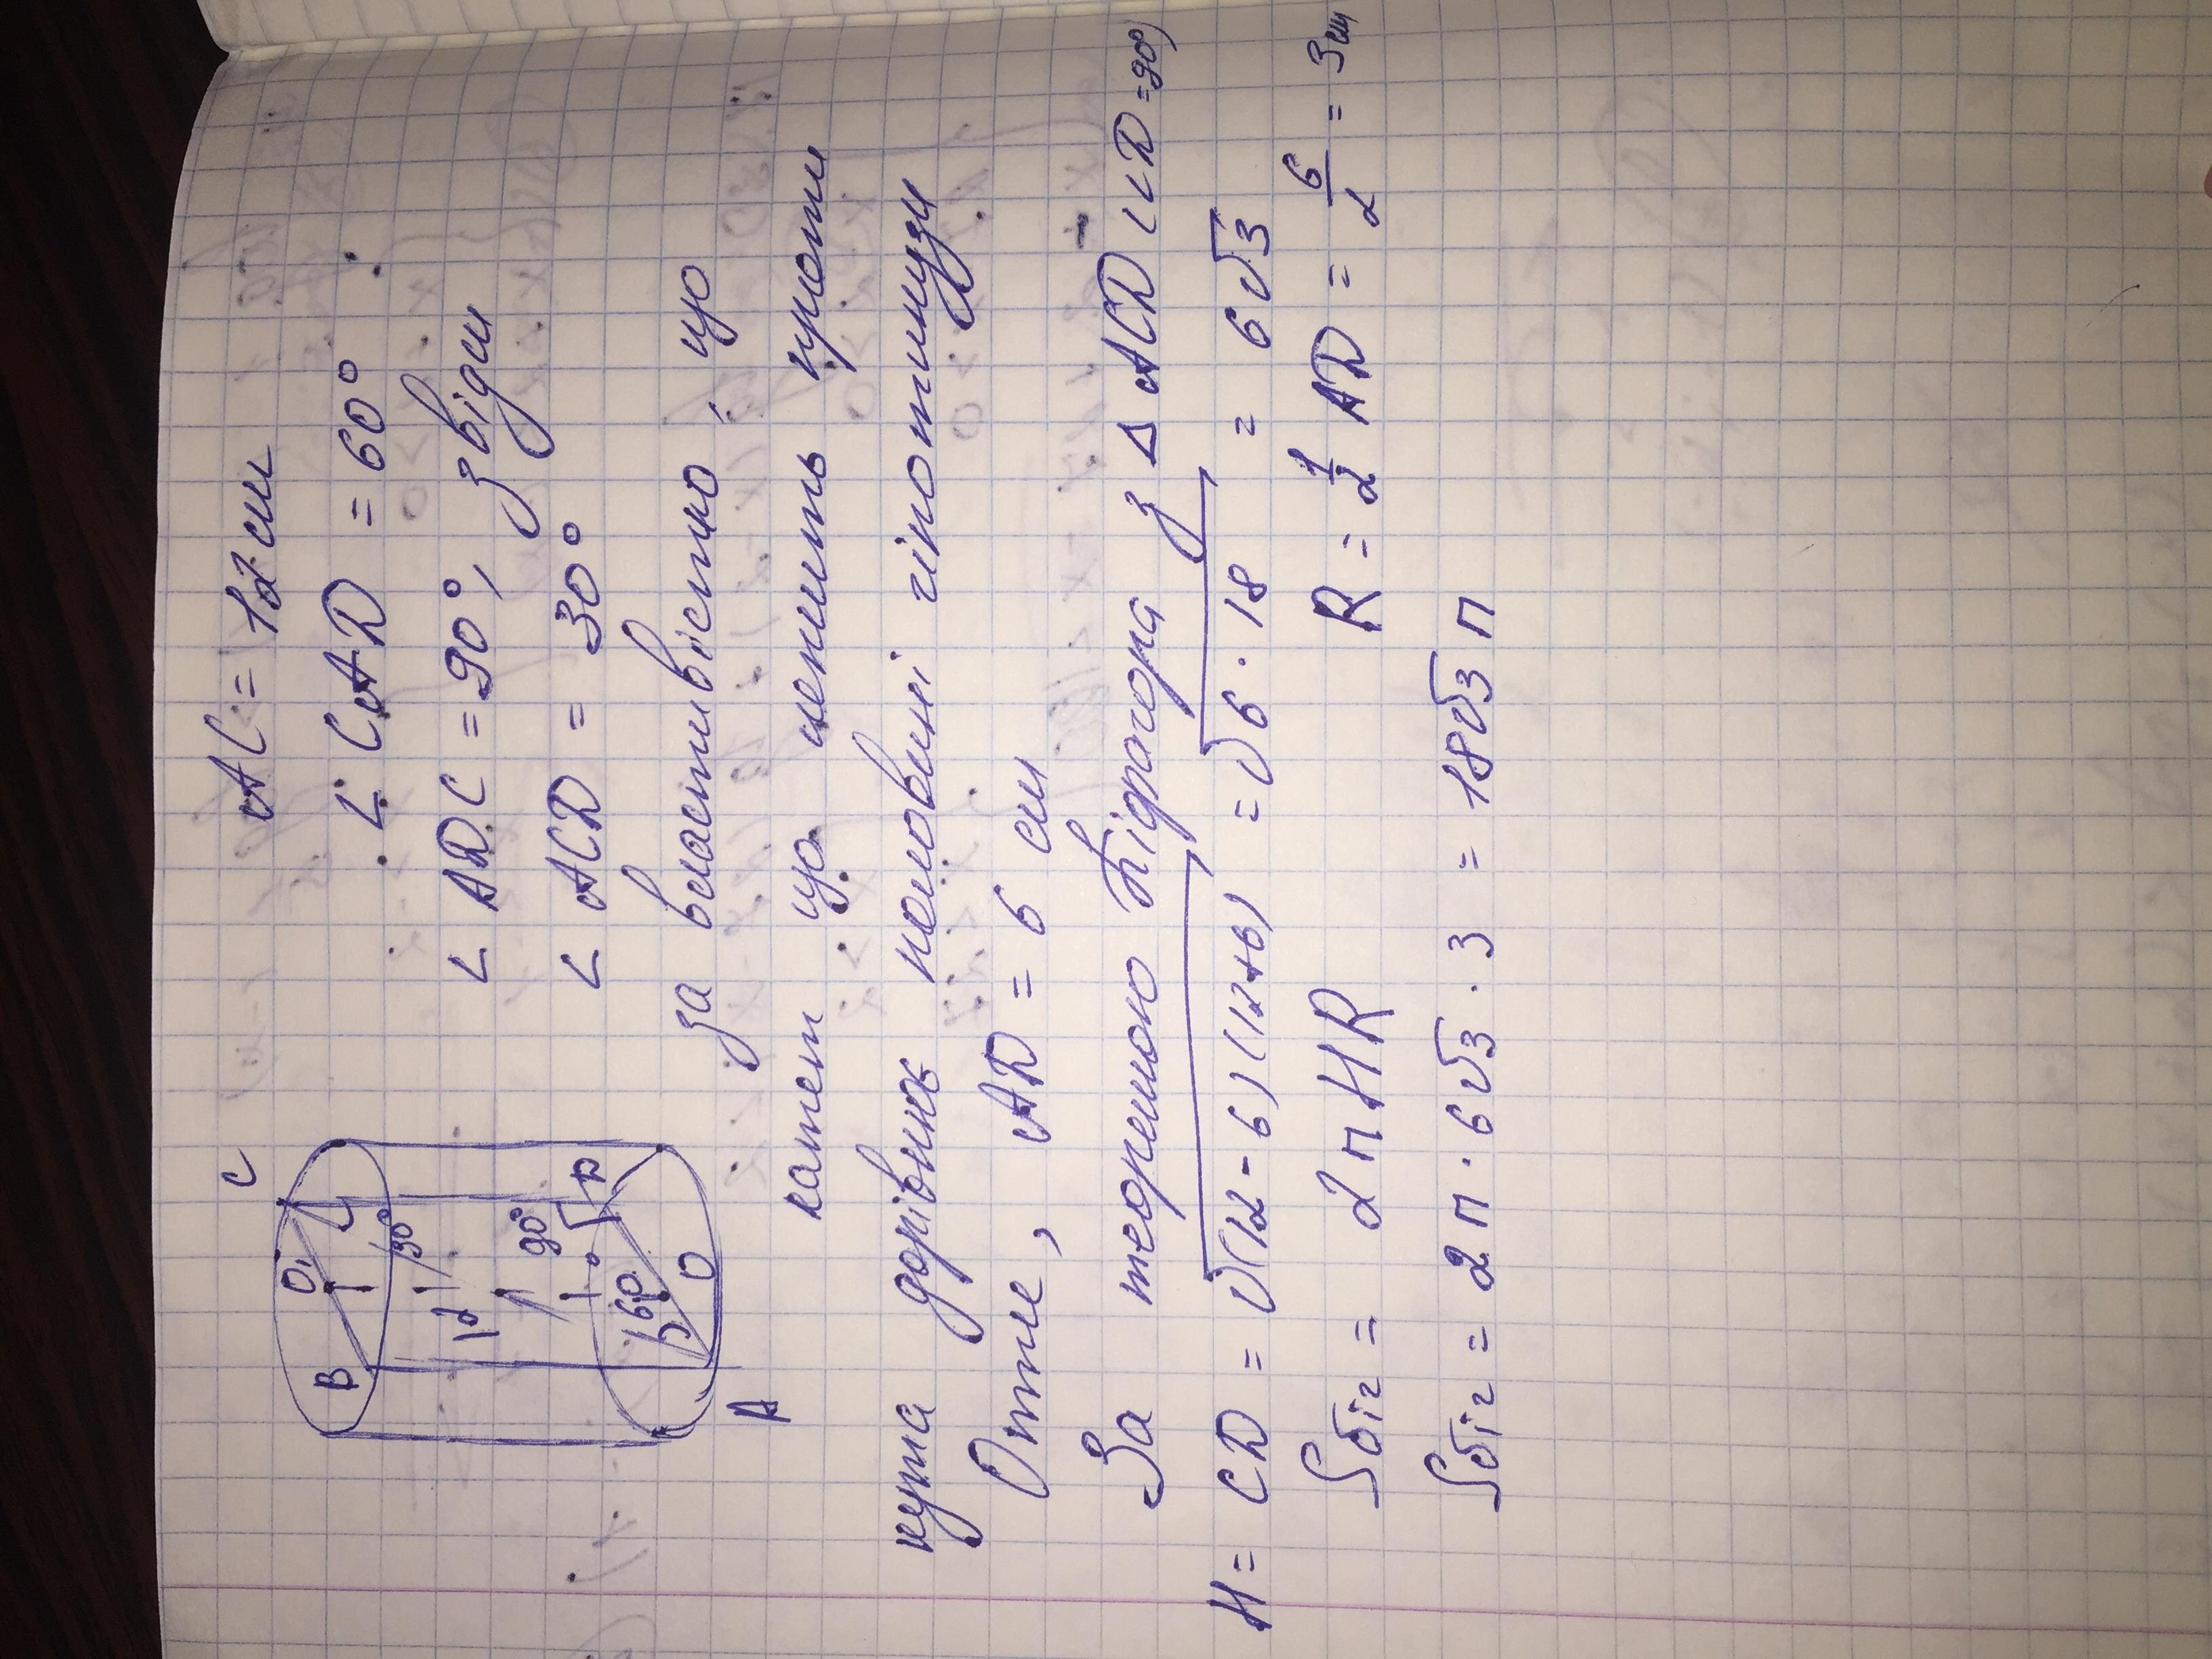 AC = 12 см
∠ CAD = 60°
∠ ADC = 90°, звідси
∠ ACD = 30°
за властивістю, що
катет що лежить проти
кута дорівнює половині гіпотинузи
Отже, AD = 6 см
За теоремою Піфагора з Δ ACD (∠D = 90°)
H = CD = √(12-6)(12+6) = √6 · 18 = 6√3
Sбіч = 2πHR R = 1/2 AD = 6/2 = 3см
Sбіч = 2π · 6√3 · 3 = 18√3 π
B O₁ C
30°
12
90°
60°
A O D